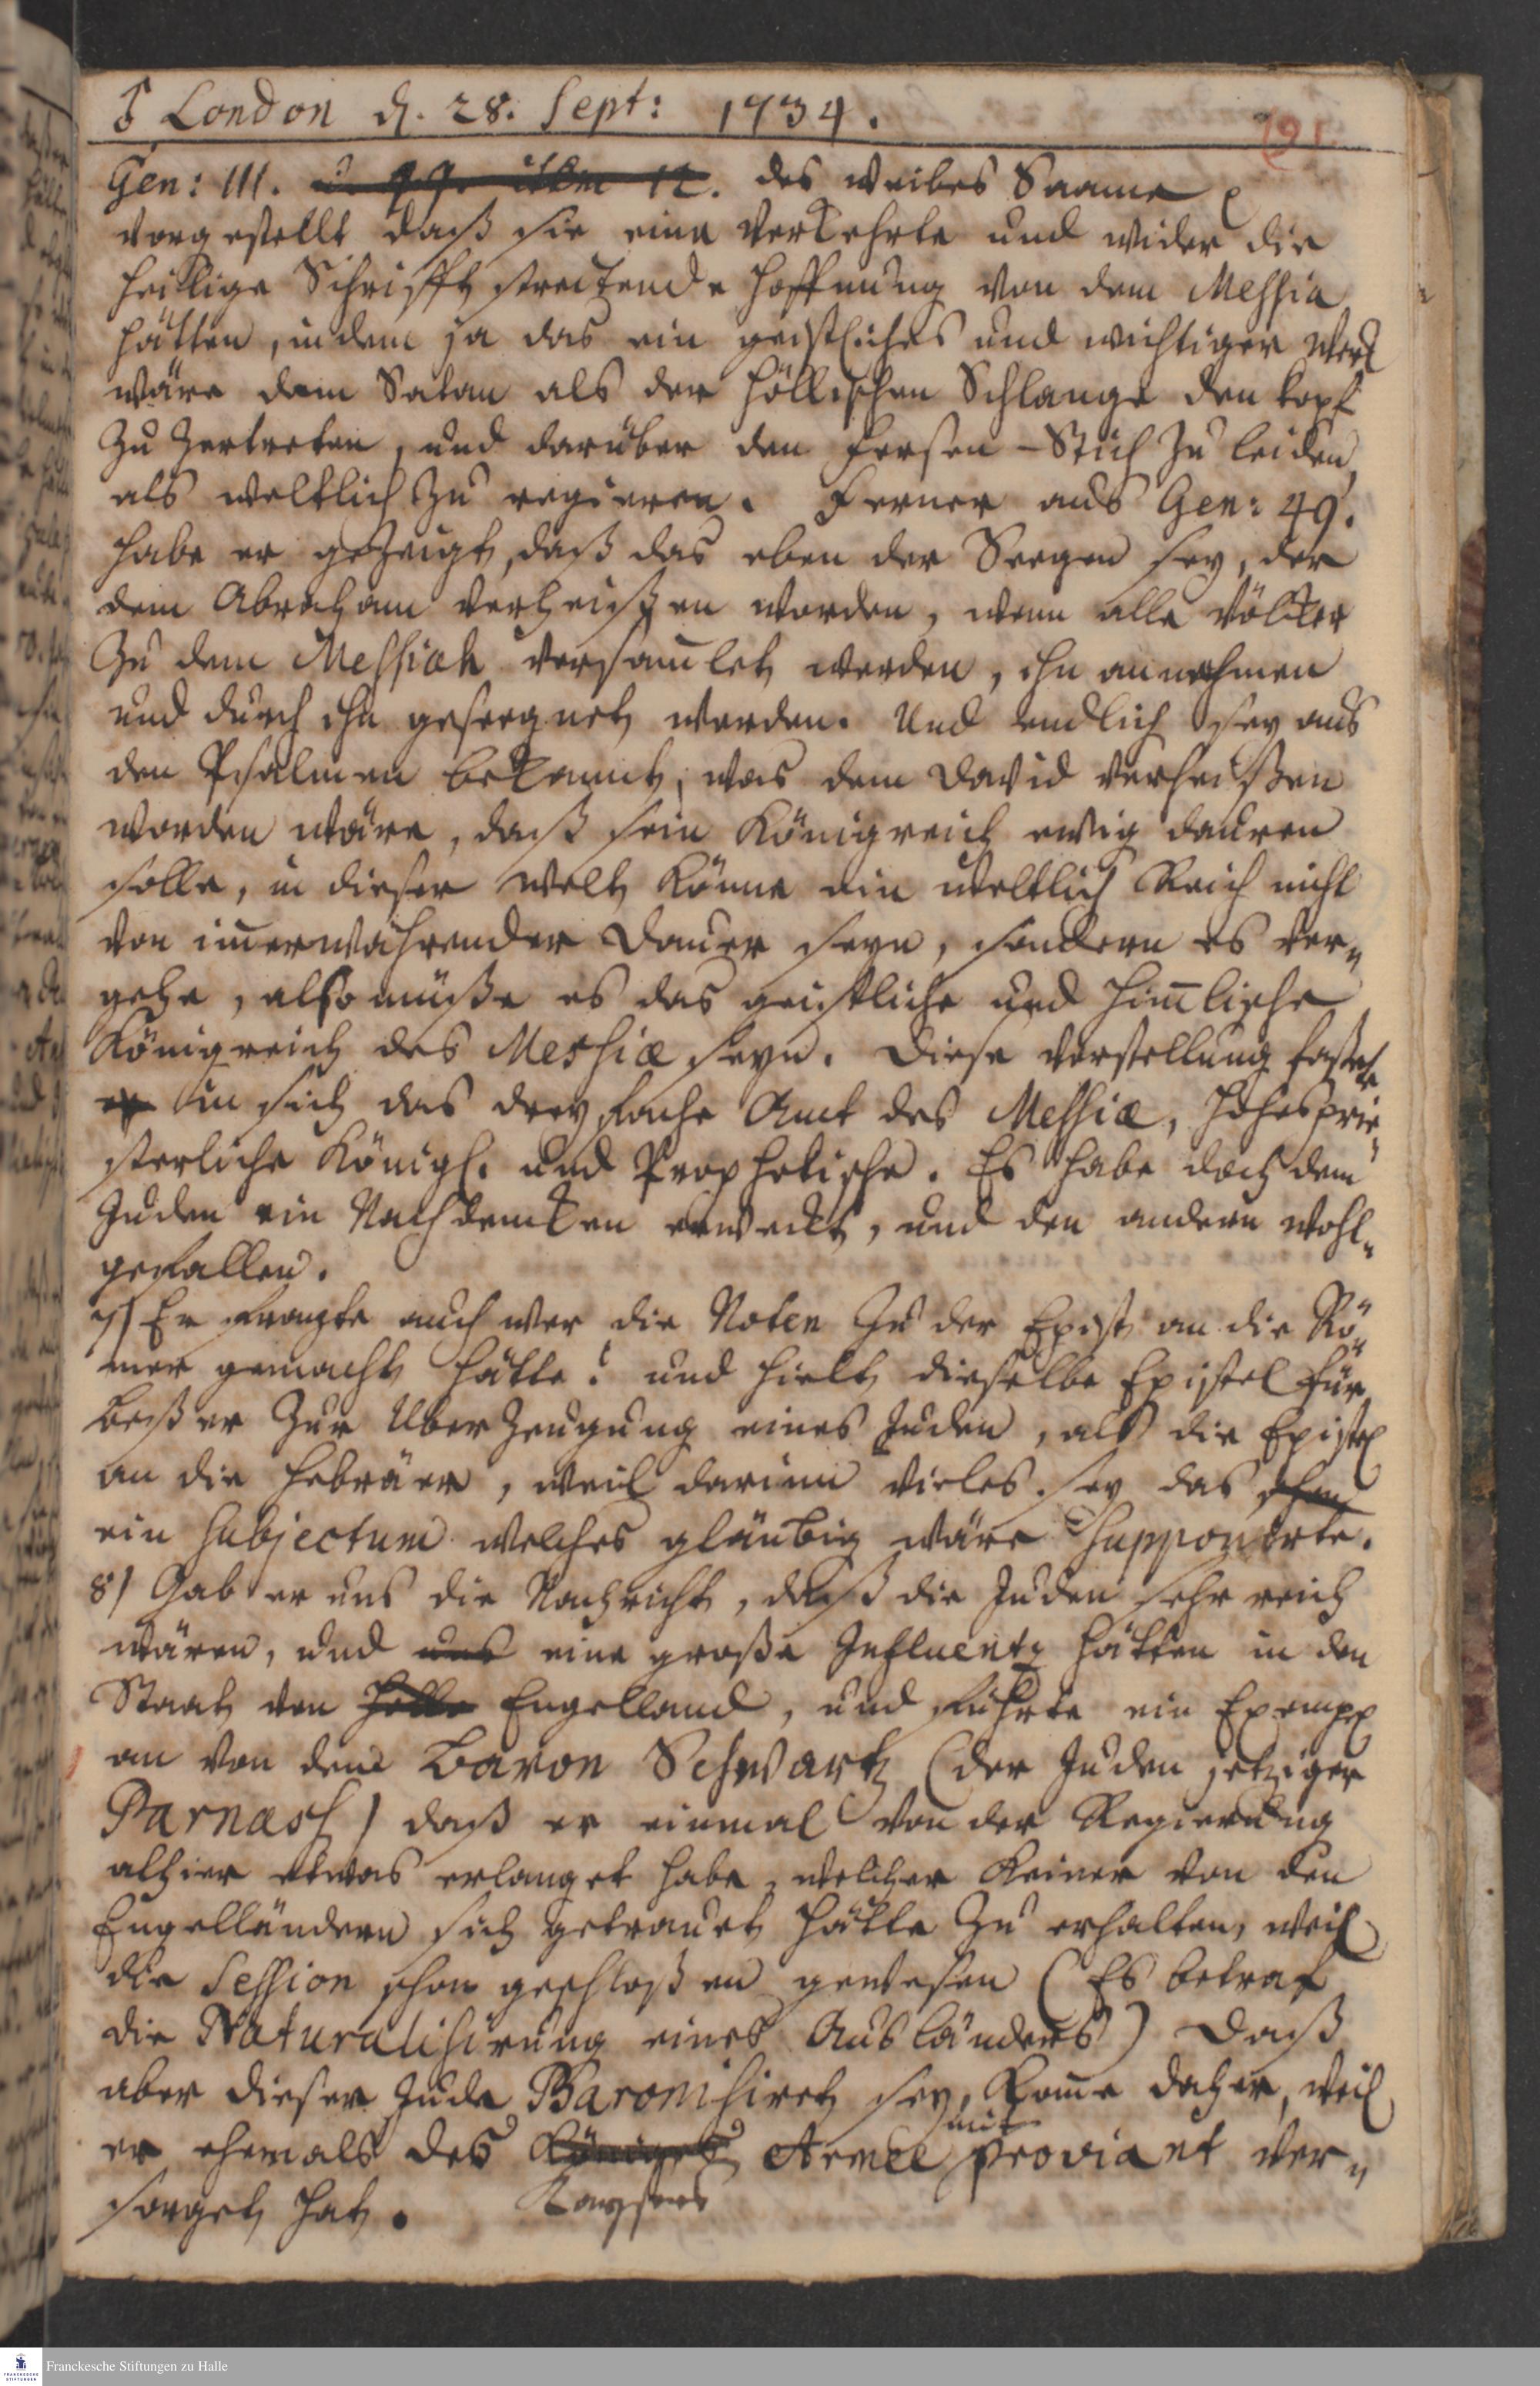 ♂ London d. 28. Sept: 1734.
191.
Gen: III. u. 49. item 12. des Weibes Saame
vorgestellt daß sie eine verkehrte und wider die
heilige Schrifft streitende Hoffnung von dem Messia
hätten, indem ja das ein geistliches und wichtiger Werck
wäre dem Satan als der höllischen Schlange den Kopf
zu zertreten, und darüber den Fersen-Stich zu leiden,
als weltlich zu regieren. Ferner aus Gen: 49.
habe er gezeigt, daß das eben der Seegen sey, der
dem Abraham verheißen worden, wenn alle Völcker
zu dem Messiah versam̅let werden, ihn annehmen
und durch ihn geseegnet werden. Und endlich sey aus
den Psalmen bekannt, was dem David verheißen
worden wäre, daß sein Königreich ewig dauren
solle, in dieser Welt könne ein weltlich Reich nicht
von im̅erwährender Dauer seyn, sondern es ver=
gehe, also müße es das geistliche und him̅lische
Königreich des Messiæ seyn. Diese Vorstellung faße
er in sich das dreyfache Amt des Messiæ, Hohesprie=
sterliche Königl. und Prophetische. Es habe doch dem
Juden ein Nachdencken erweckt, und den andern wohl=
gefallen.
7) Er fragte auch wer die Noten zu der Epist. an die Rö=
mer gemacht hätte? und hielt dieselbe Epistel für
beßer zur Uberzeugung eines Juden, als die Epistel
an die Hebräer, weil darinn vieles sey das schon
ein Subjectum welches gläubig wäre supponirte.
8) Gab er uns die Nachricht, daß die Juden sehr reich
wären, und uns eine große Influentz hätten in den
Staat von Engelland, und führte ein Exempel
an von dem Baron Schwartz (der Juden jetziger
Parnasch) daß er einmal von der Regierung
alhier etwas erlanget habe, welches keiner von den
Engelländern sich getrauet hätte zu erhalten, weil
die Session schon geschloßen gewesen (Es betraf
die Naturalisirung eines Ausländers) Daß
aber dieser Jude Baronisiret sey, kom̅e daher, weil
er ehemals des Königes Kaysers Armee mit Proviant ver=
sorget hat.
Franckesche Stiftungen zu Halle